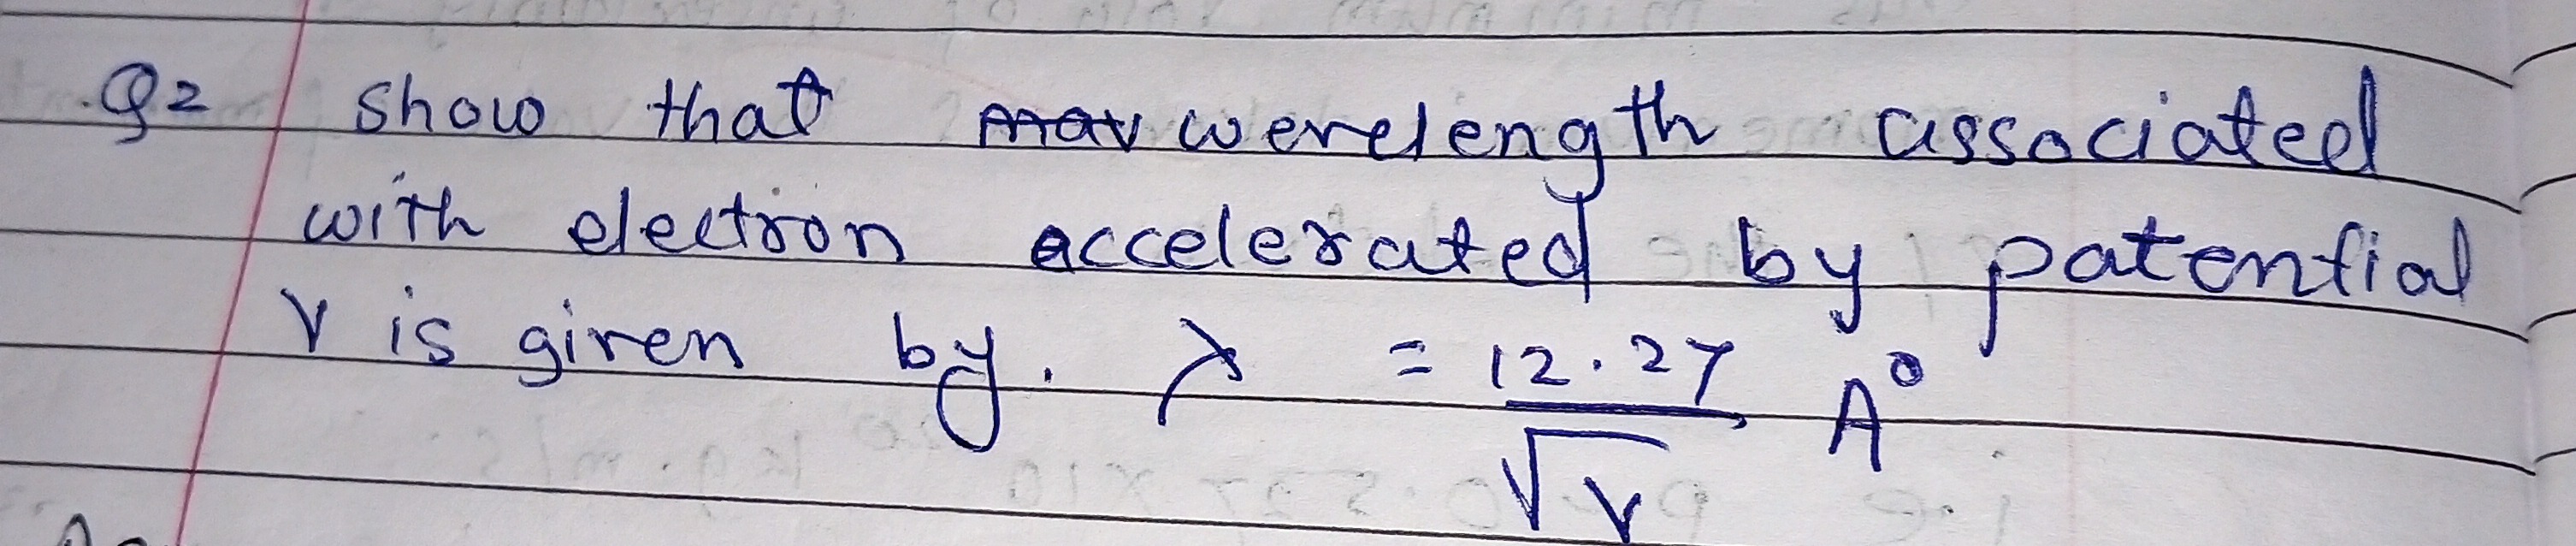 Q2 show that wevelength associated
with electron accelerated by patential
V is given by. λ = 12.27 / √V A°